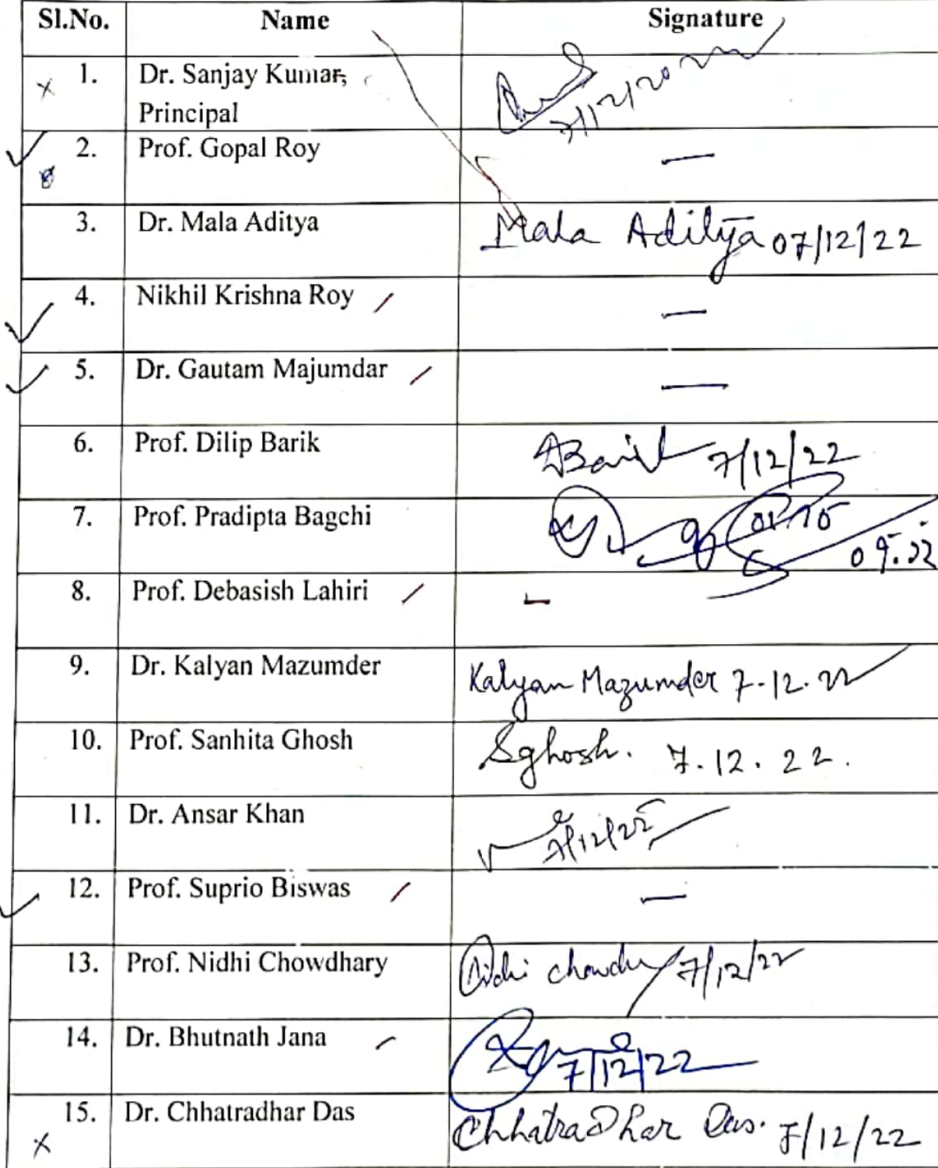 Sl.No. Name Signature
1. Dr. Sanjay Kumar, 7/12/2022
Principal
2. Prof. Gopal Roy —
3. Dr. Mala Aditya Mala Aditya 07/12/22
4. Nikhil Krishna Roy —
5. Dr. Gautam Majumdar —
6. Prof. Dilip Barik DBarik 7/12/22
7. Prof. Pradipta Bagchi
8. Prof. Debasish Lahiri -
9. Dr. Kalyan Mazumder Kalyan Mazumder 7-12-22
10. Prof. Sanhita Ghosh Sghosh. 7.12.22.
11. Dr. Ansar Khan 7/12/22
12. Prof. Suprio Biswas —
13. Prof. Nidhi Chowdhary Nidhi 7/12/22
14. Dr. Bhutnath Jana 7/12/22
15. Dr. Chhatradhar Das Chhatradhar Das. 7/12/22